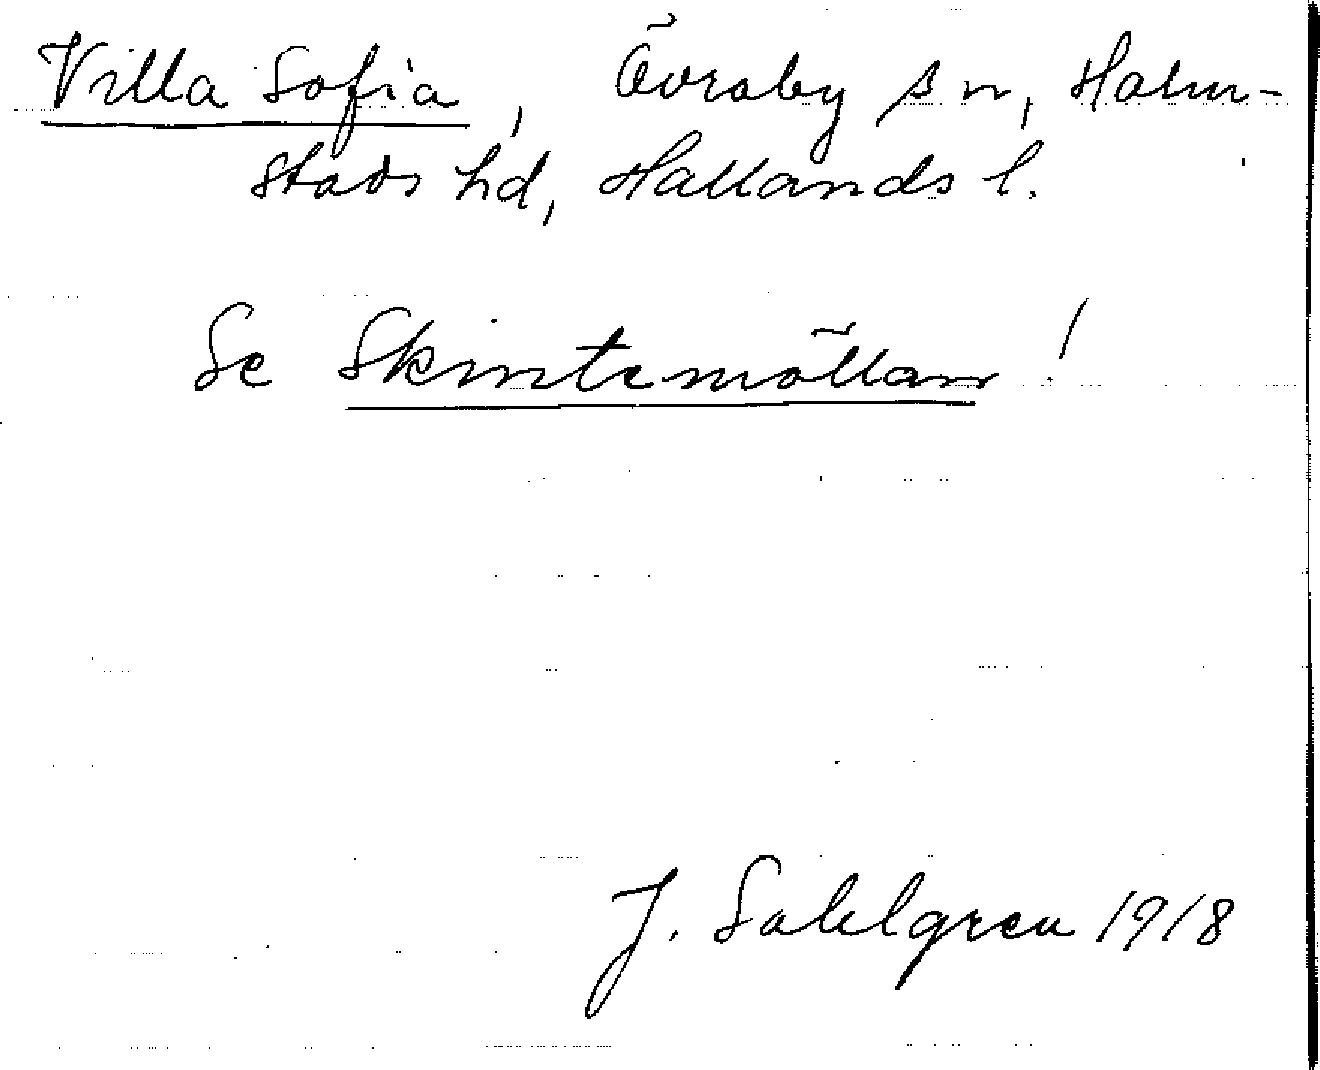 Villa Sofia, Övraby sn, Halm-
stads hd, Hallands l.
Se Skintemöllan!
J. Sahlgren 1918